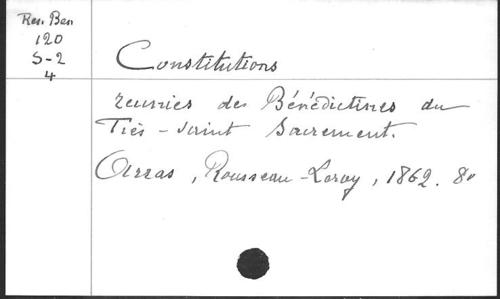 Res. Ben
120
S-2
4
Constitutions
reunies des Bénédictines du
Très-saint Sacrement.
Arras, Rousseau-Leroy, 1862. 8°